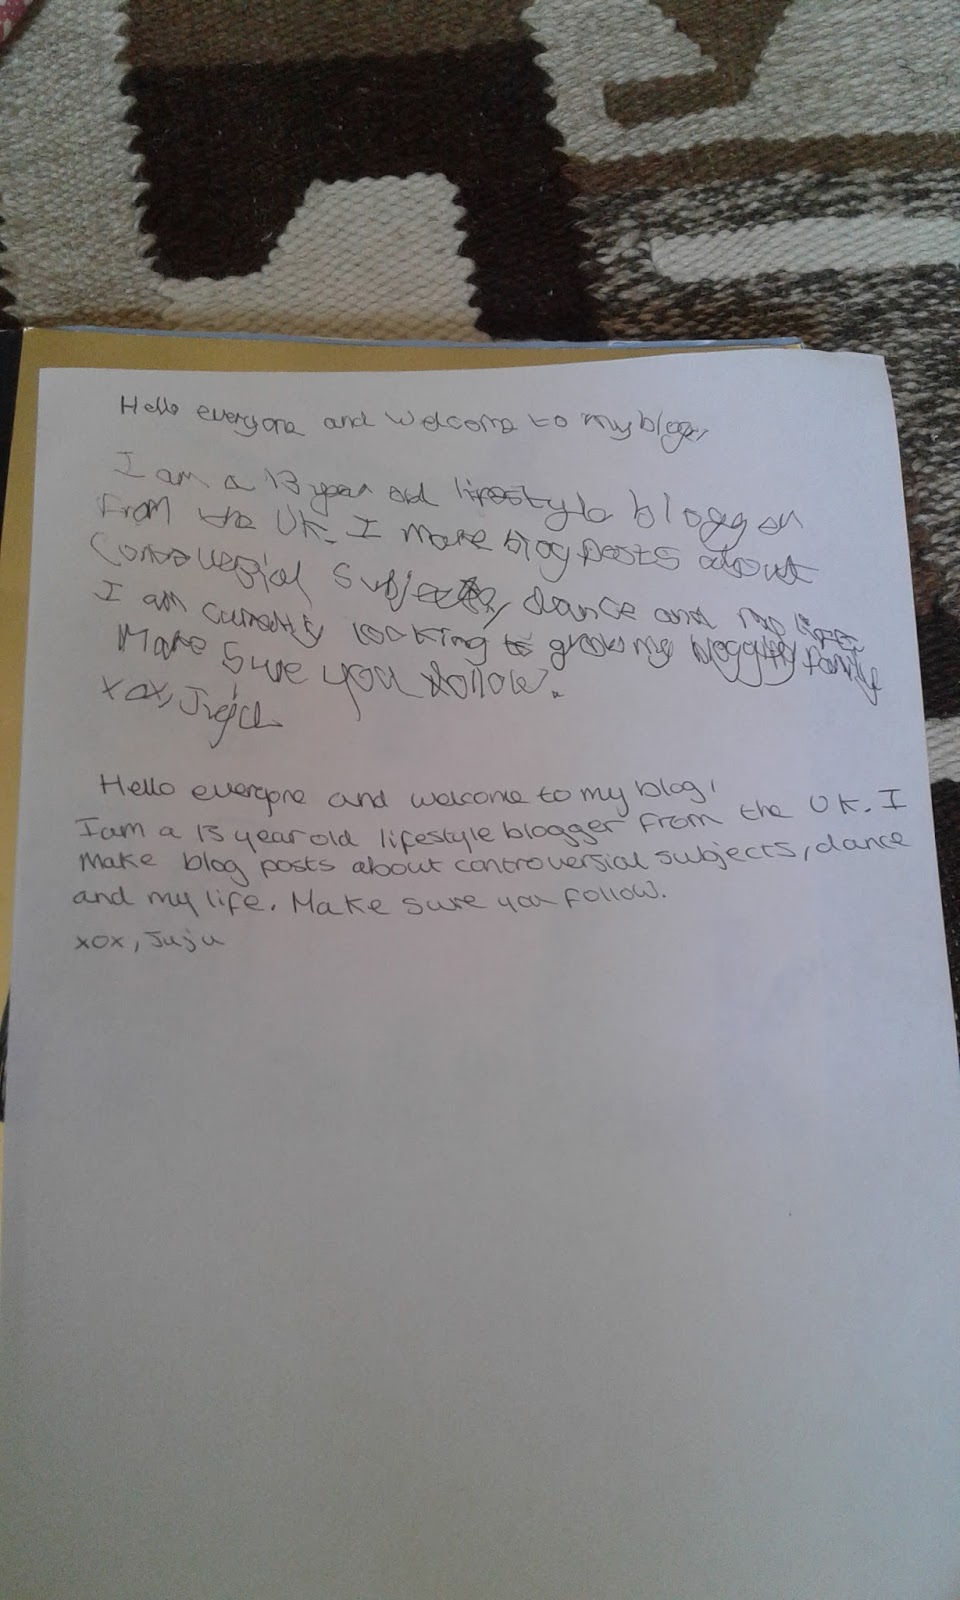 Hello everyone and welcome to my blog,
I am a 13 year old lifestyle blogger
From the UK. I make blog posts about
Controversial subjects, dance and my life.
I am currently looking to grow my blogging family
Make sure you follow.
xox, Juju
Hello everyone and welcome to my blog,
I am a 13 year old lifestyle blogger from the UK. I
make blog posts about controversial subjects, dance
and my life. Make sure you follow.
xox, Juju